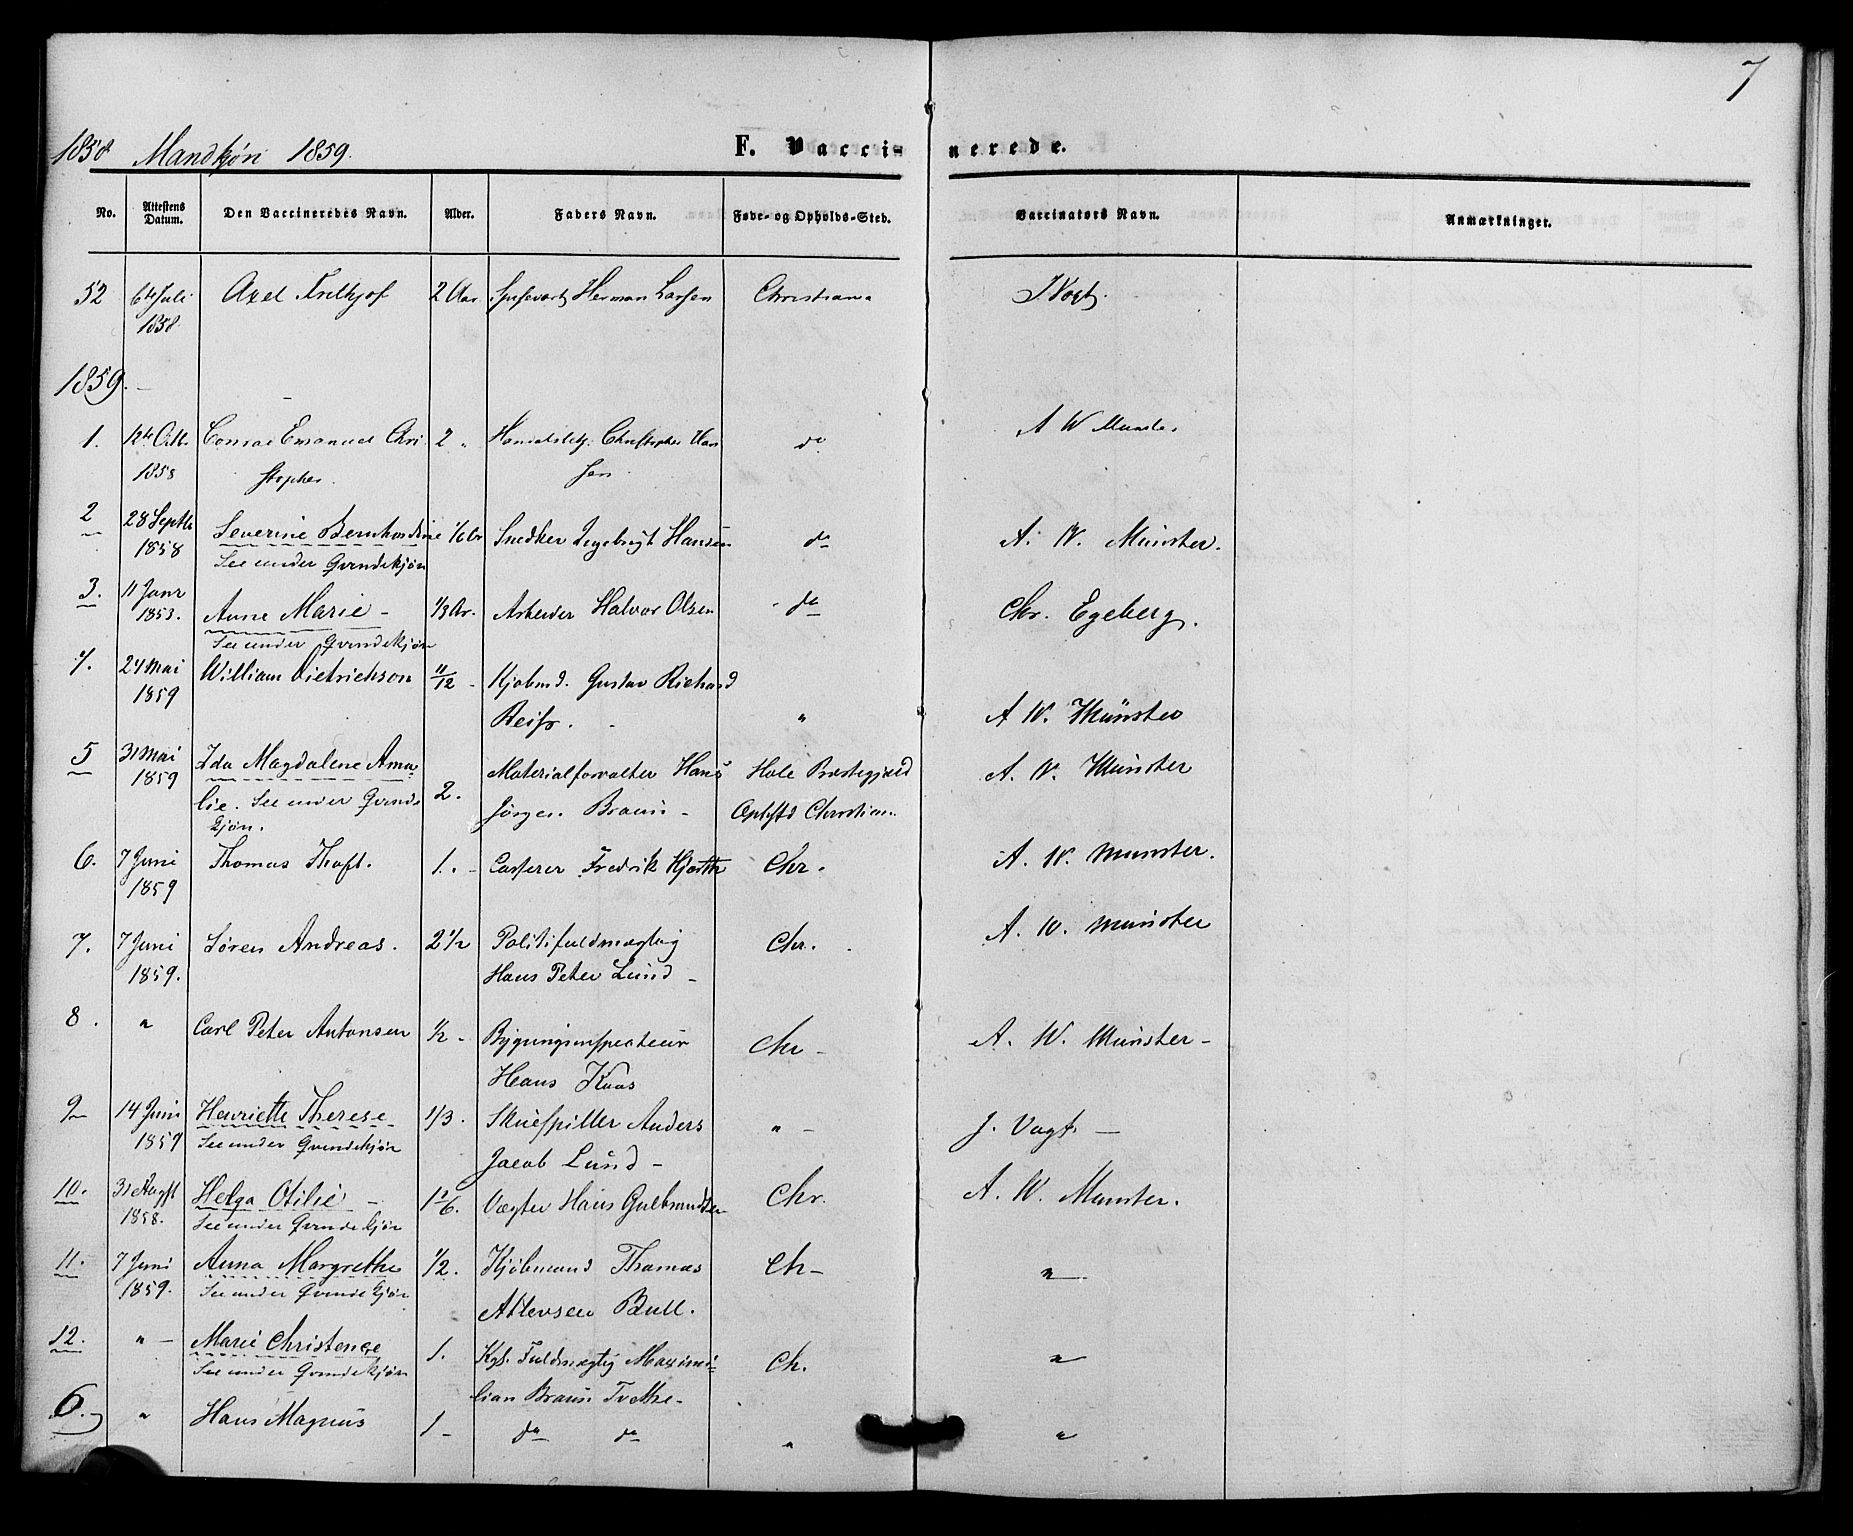 7
1858 Mandkjön 1859.
F. Vaccinerede.
No. Attestens Datum. Den Vaccineredes Navn. Alder. Faders Navn. Føde- og Opholds-Sted. Vaccinators Navn. Anmærkninger.
52 6te Juli 2 Aar Herman Larsen Christiania J Vogt.
1858.
1859. –
1. 12te Octb. Conrad Emanuel Chri- 2 " Christopher Han- do
1858 stopher. sen
2 28 Septb Severine Bernhardine 1/6 Ar Snedker Ingebrigt Hansen do A. W. Münster.
1858 See under Qvindekjön
3. 11 Janr Anne Marie – 1/3 Ar. Arbeider Halvor Olsen do Chr. Egeberg.
1853. See under Qvindekjön
4. 24 Mai William Dietrichson 11/12 - Kjøbmd. Gustav Richard
1859 Reiss. " A W. Münster
5 31 Mai Ida Magdalene Ama- Materialforvalter Hans Hole Præstegjæld A. W. Münster
1859 lie. See under Qvinde 2. Jörgen Braun – Opholdsd Christian.
kjön.
6. 7 Juni Thomas Thaft. 1. - Casserer Fredrik Hjorth Chr. A. W. Münster.
1859
7. 7 Juni Sören Andreas. 2 1/2 Politifuldmægtig Chr. A. W. Münster
1859. Hans Peter Lund –
8. " Carl Peter Antonsen 1/2 - Bygningsinspecteur Chr – A. W. Münster –
Hans Kaas
9 14 Juni Henriette Therese 1/3. Skuespiller Anders " – J. Vogt. –
1859 See under Qvindekjön Jacob Lund –
10. 31 Augst Helga Otilie – 1 2/6. Vægter Hans Gulbrandsen Chr. A. W. Münster.
1858. See under Qvindekjön
11. 7 Juni Anna Margrethe 1/2. Kjöbmand Thomas Ch – "
1859. See under Qvindekjön Bull.
12. " – Marie Christence 1. Kgl. Fuldmægtig Maximi- Ch. "
See under Qvindekjön lian Braun Tvethe –
6. " Hans Magnus 1 – do do " "